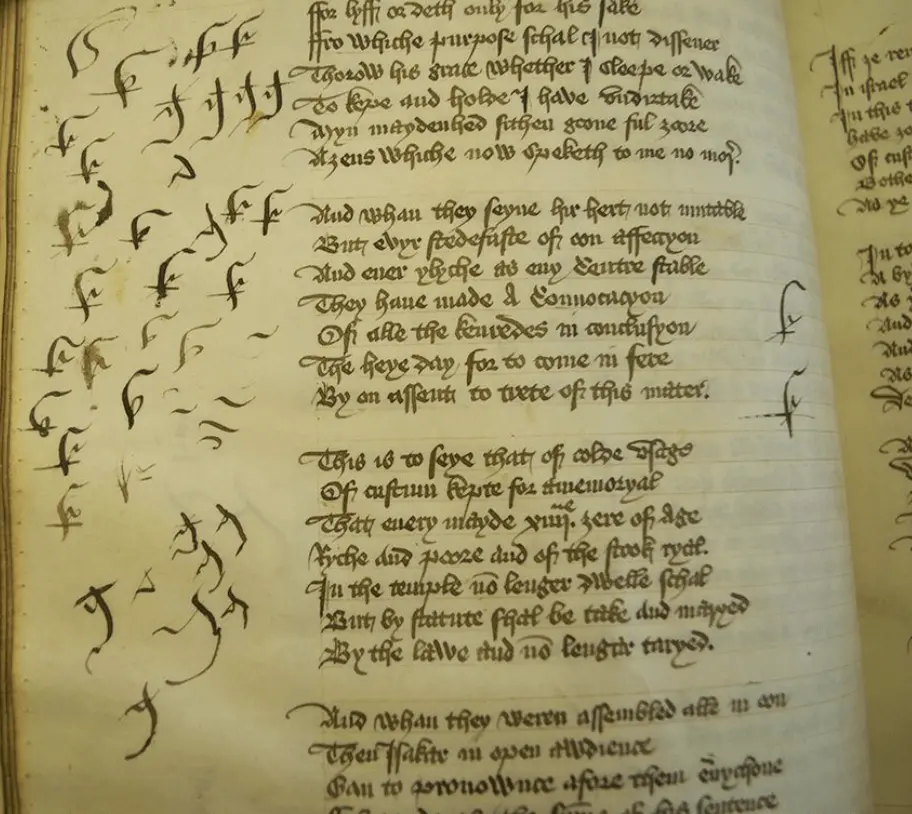 ffor lyff or deth only for his sake
ffro whiche purpose schal I not disseuer
Thorow his grace whether I sleepe or wake
To kepe and holde I have vndirtake
Myn maydenhed sithen goone ful ȝoore
Aȝens whiche now speketh to me no mor
And whan they seyne hir hert not mutable
But evyr stedefaste of oon affeccyon
And euer ylyche as eny Centre stable
They haue made A Conuocacyon
Of alle the kenredes in conclusyon
The heye day for to come in fere
By on assent to trete of this mater.
This is to seye that of oolde vsage
Of custum kepte for a memoryal
That euery mayde xiiii. ȝere of Age
Ryche and poore and of the stook ryal.
In the temple no lenger dwelle schal
But by statute shal be take and maryed
By the lawe and no lengar taryed.
And whan they weren assembled alle in oon
Then Isakar in open Awdience
Gan to pronownce afore them euychone
sentence
In israel
In this
Of cust
Bothe
In to
A by
As
And
And
As